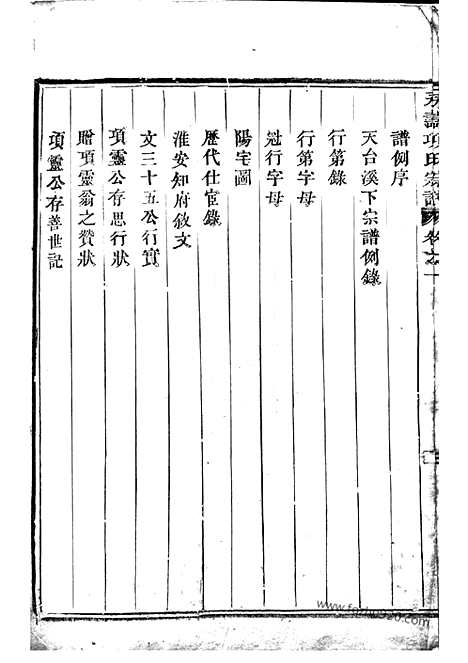 項氏宗譜 卷之一
譜例序
天台溪下宗譜例錄
行第錄
行第字母
冠行字母
陽宅圖
歷代仕宦錄
淮安知府敘文
文三十五公行實
項靈公存思行狀
贈項靈翁之贊狀
項靈公存善世記